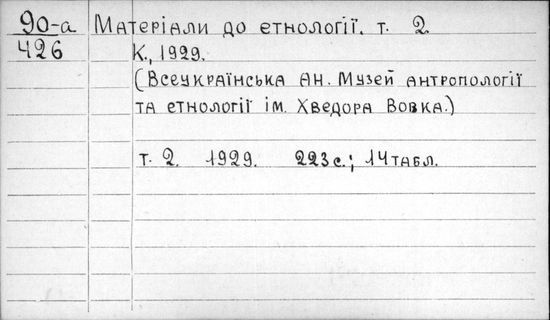 90-а
426
Матеріали до етнології. т. 2
К., 1929.
(Всеукраїнська АН. Музей антропології
та етнології ім. Хведора Вовка.)
т. 2. 1929. 223 с.; 14 табл.